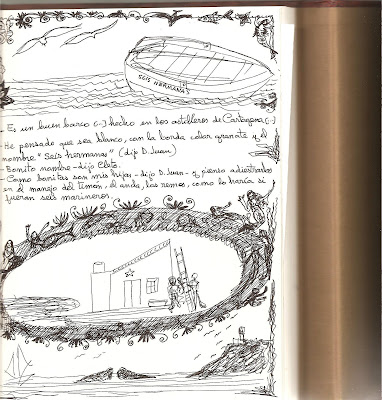 SEIS HERMANAS
Es un buen barco (..) hecho en los astilleros de Cartagena (..)
He pensado que sea blanco, con la borda color granate y el
nombre "Seis hermanas" (dijo D. Juan)
- Bonito nombre - dijo Cleto.
- Como bonitas son mis hijas - dijo D. Juan - y pienso adiestrarlas
en el manejo del timón, el ancla, los remos, como lo haría si
fueran seis marineros.